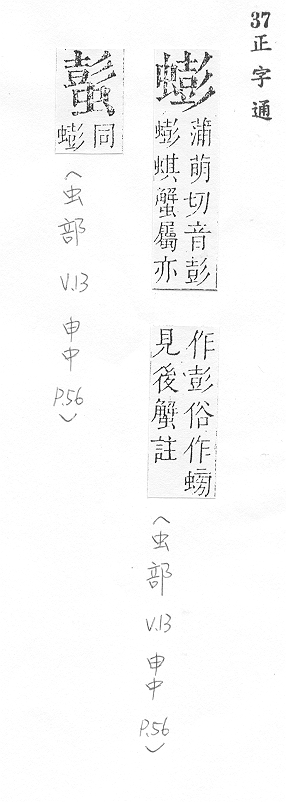 37正字通
蟛
蒲萌切音彭
蟛蜞蟹屬亦
作彭俗作螃
見後蟹註
(虫部 V.13 申中 P.56)
蟚
同
蟛
(虫部 V.13 申中 P.56)